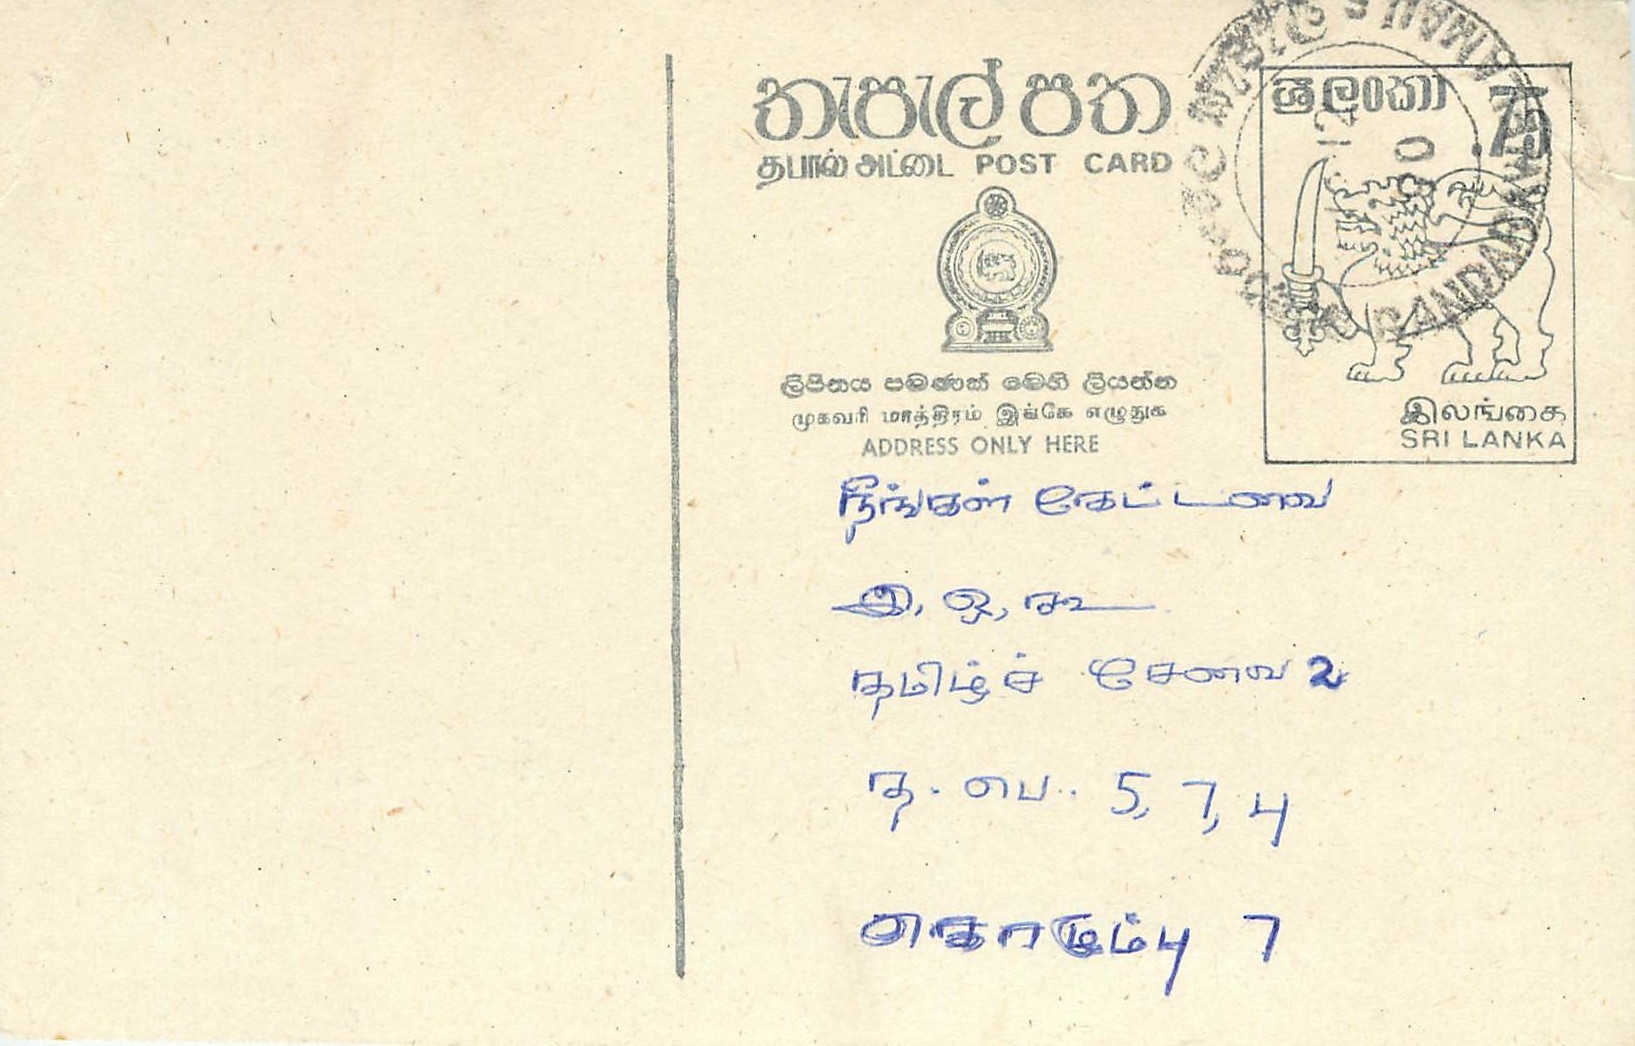 තැපැල් පත
தபால் அட்டை POST CARD
ශ්‍රී ලංකා .75
ලිපිනය පමණක් මෙහි ලියන්න
முகவரி மாத்திரம் இங்கே எழுதுக
ADDRESS ONLY HERE
இலங்கை
SRI LANKA
நீங்கள் கேட்டவை
இ, ஒ, கூ
தமிழ்ச் சேவை 2
த. பெ. 5, 7, 4
கொழும்பு 7